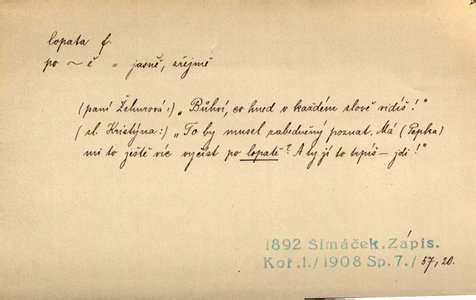 lopata f.
po ~ě = jasně, zřejmě
(paní Žehurová:) „Bůhví, co hned v každém slově vidíš!"
(sl. Kristýna:) „To by musel zabedněný poznat. Má (Pepka)
mi to ještě víc vyčíst po lopatě? A ty jí to trpíš – jdi!"
1892 Šimáček, Zápis.
Koř.I./1908 Sp.7./57, 20.